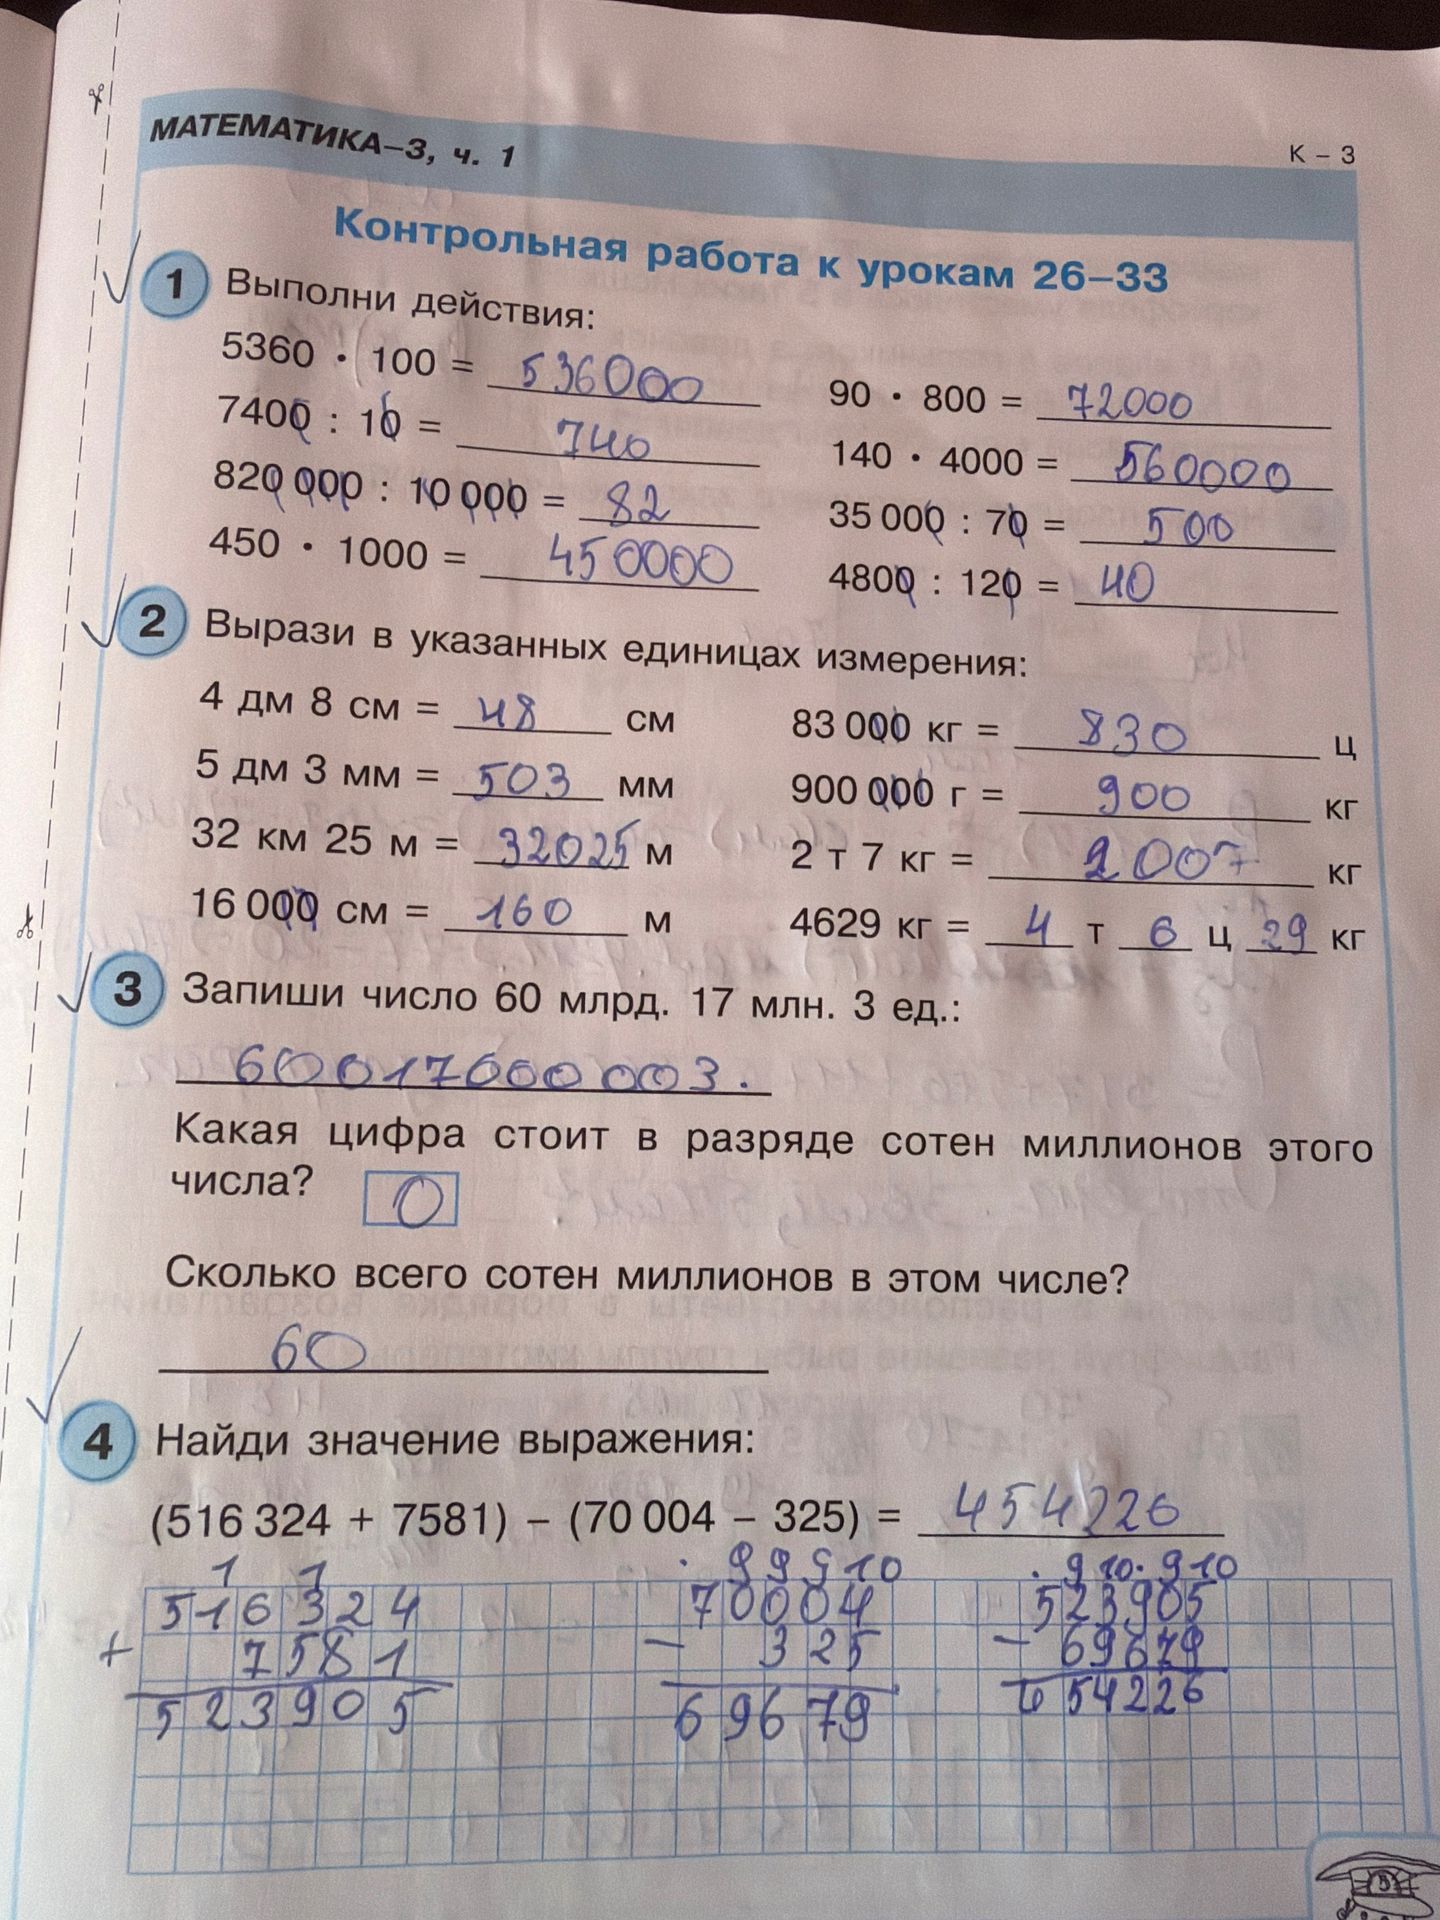 МАТЕМАТИКА–3, ч. 1
К – 3
Контрольная работа к урокам 26–33
1 Выполни действия:
5360 · 100 = 536000
7400 : 10 = 740
820 000 : 10 000 = 82
450 · 1000 = 450000
90 · 800 = 72000
140 · 4000 = 560000
35 000 : 70 = 500
4800 : 120 = 40
2 Вырази в указанных единицах измерения:
4 дм 8 см = 48 см
5 дм 3 мм = 503 мм
32 км 25 м = 32025 м
16 000 см = 160 м
83 000 кг = 830 ц
900 000 г = 900 кг
2 т 7 кг = 2007 кг
4629 кг = 4 т 6 ц 29 кг
3 Запиши число 60 млрд. 17 млн. 3 ед.:
60017000003.
Какая цифра стоит в разряде сотен миллионов этого
числа? 0
Сколько всего сотен миллионов в этом числе?
60
4 Найди значение выражения:
(516 324 + 7581) – (70 004 – 325) = 454226
1 1
516324
+ 7581
523905
. 9 9 9 10
70004
– 325
69679
. 9 10 . 9 10
523905
– 69679
454226